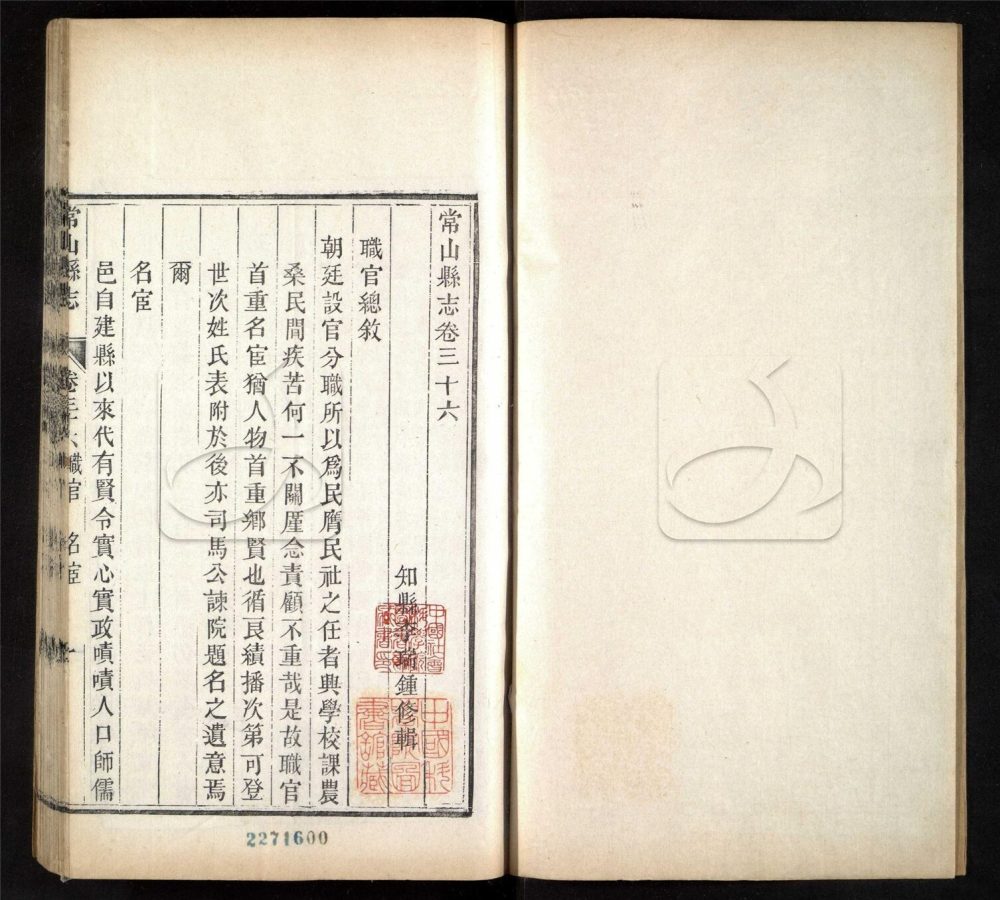 常山縣志卷三十六
知縣李瑞鍾修輯
職官總敘
朝廷設官分職所以爲民膺民社之任者興學校課農
桑民間疾苦何一不關厪念責顧不重哉是故職官
首重名宦猶人物首重鄉賢也循良績播次第可登
世次姓氏表附於後亦司馬公諫院題名之遺意焉
爾
名宦
邑自建縣以來代有賢令實心實政嘖嘖人口師儒
常山縣志 卷三十六 職官 名宦 一
2271600